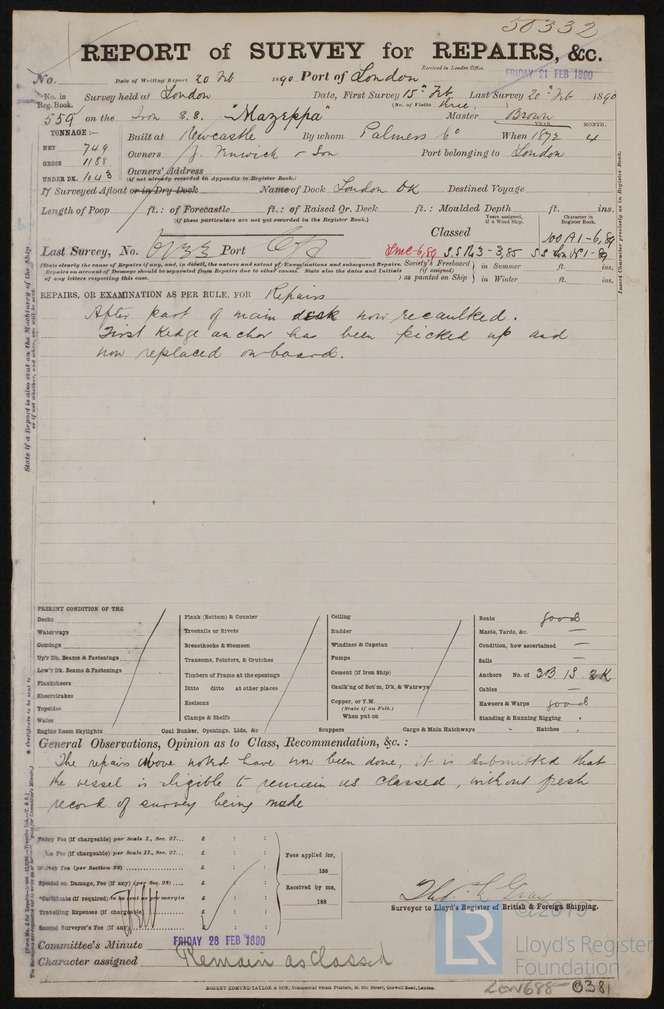 50332
REPORT of SURVEY for REPAIRS, &c.
No. Date of Writing Report 20 Feb 1890 Port of London Received in London Office. FRIDAY 21 FEB 1890
No. in Reg. Book. Survey held at London Date, First Survey 15th Feb Last Survey 20th Feb 1890
(No. of Visits three.)
559 on the Iron S.S. "Mazeppa" Master Brown
TONNAGE:— Built at Newcastle By whom Palmers Co When 1872 YEAR. MONTH. 4
NET 749
GROSS 1188 Owners J. Fenwick & Son Port belonging to London
UNDER DK. 1143 Owners' Address
(if not already recorded in Appendix to Register Book.)
If Surveyed Afloat or in Dry Dock Name of Dock London DK Destined Voyage
Length of Poop ft.: of Forecastle ft.: of Raised Qr. Deck ft.: Moulded Depth ft. ins.
(if these particulars are not yet recorded in the Register Book.)
Years assigned, if a Wood Ship. Character in Register Book.
Classed 100A1-6,89
Last Survey, No. Port LMC-6,89 S.S. No3-3,85
(State clearly the cause of Repairs if any, and, in detail, the nature and extent of Examinations and subsequent Repairs.
Repairs on account of Damage should be separated from Repairs due to other causes. State also the dates and Initials
of any letters respecting this case.
Society's Freeboard (if assigned) as painted on Ship in Summer ft. ins.
in Winter ft. ins.
REPAIRS, OR EXAMINATION AS PER RULE, FOR Repairs
After part of main deck now recaulked.
First Kedge anchor has been picked up and
now replaced on board.
Insert Character previously as in Register Book.
PRESENT CONDITION OF THE
Decks
Waterways
Coamings
Up'r Dk. Beams & Fastenings
Low'r Dk. Beams & Fastenings
Planksheers
Sheerstrakes
Topsides
Wales
Engine Room Skylights
Plank (Bottom) & Counter
Treenails or Rivets
Breasthooks & Stemson
Transoms, Pointers, & Crutches
Timbers of Frame at the openings
Ditto ditto at other places
Keelsons
Clamps & Shelfs
Coal Bunker, Openings, Lids, &c
Ceiling
Rudder
Windlass & Capstan
Pumps
Cement (if Iron Ship)
Caulk'ng of Bot'm, D'k, & Watrwys
Copper, or Y.M.
(State if on Felt.)
When put on
Scuppers Cargo & Main Hatchways
Boats good
Masts, Yards, &c. —
Condition, how ascertained —
Sails —
Anchors No. of 3B. 1S. 2K
Cables —
Hawsers & Warps good
Standing & Running Rigging
Hatches
General Observations, Opinion as to Class, Recommendation, &c.:
The repairs above noted have now been done, it is submitted that
the vessel is eligible to remain as classed, without fresh
record of survey being made
Entry Fee (if chargeable) per Scale I., Sec. 27... £ : :
Fee (if chargeable) per Scale II., Sec. 27... £ : :
Survey Fee (per Section 28) £ : :
Special on Damage, Fee (if any) (per Sec. 28) £ : :
Certificate (if required) to be sent as per margin
Travelling Expenses (if chargeable) £ : :
Second Surveyor's Fee (if any) £ : :
Fees applied for,
188
Received by me,
188
Surveyor to Lloyd's Register of British & Foreign Shipping.
Committee's Minute FRIDAY 28 FEB 1890
Character assigned Remain as Classed
ROBERT EDMUND TAYLOR & SON, Commercial Steam Printers, 19, Old Street, Goswell Road, London.
LR
Lloyd's Register
Foundation
LON688-0381